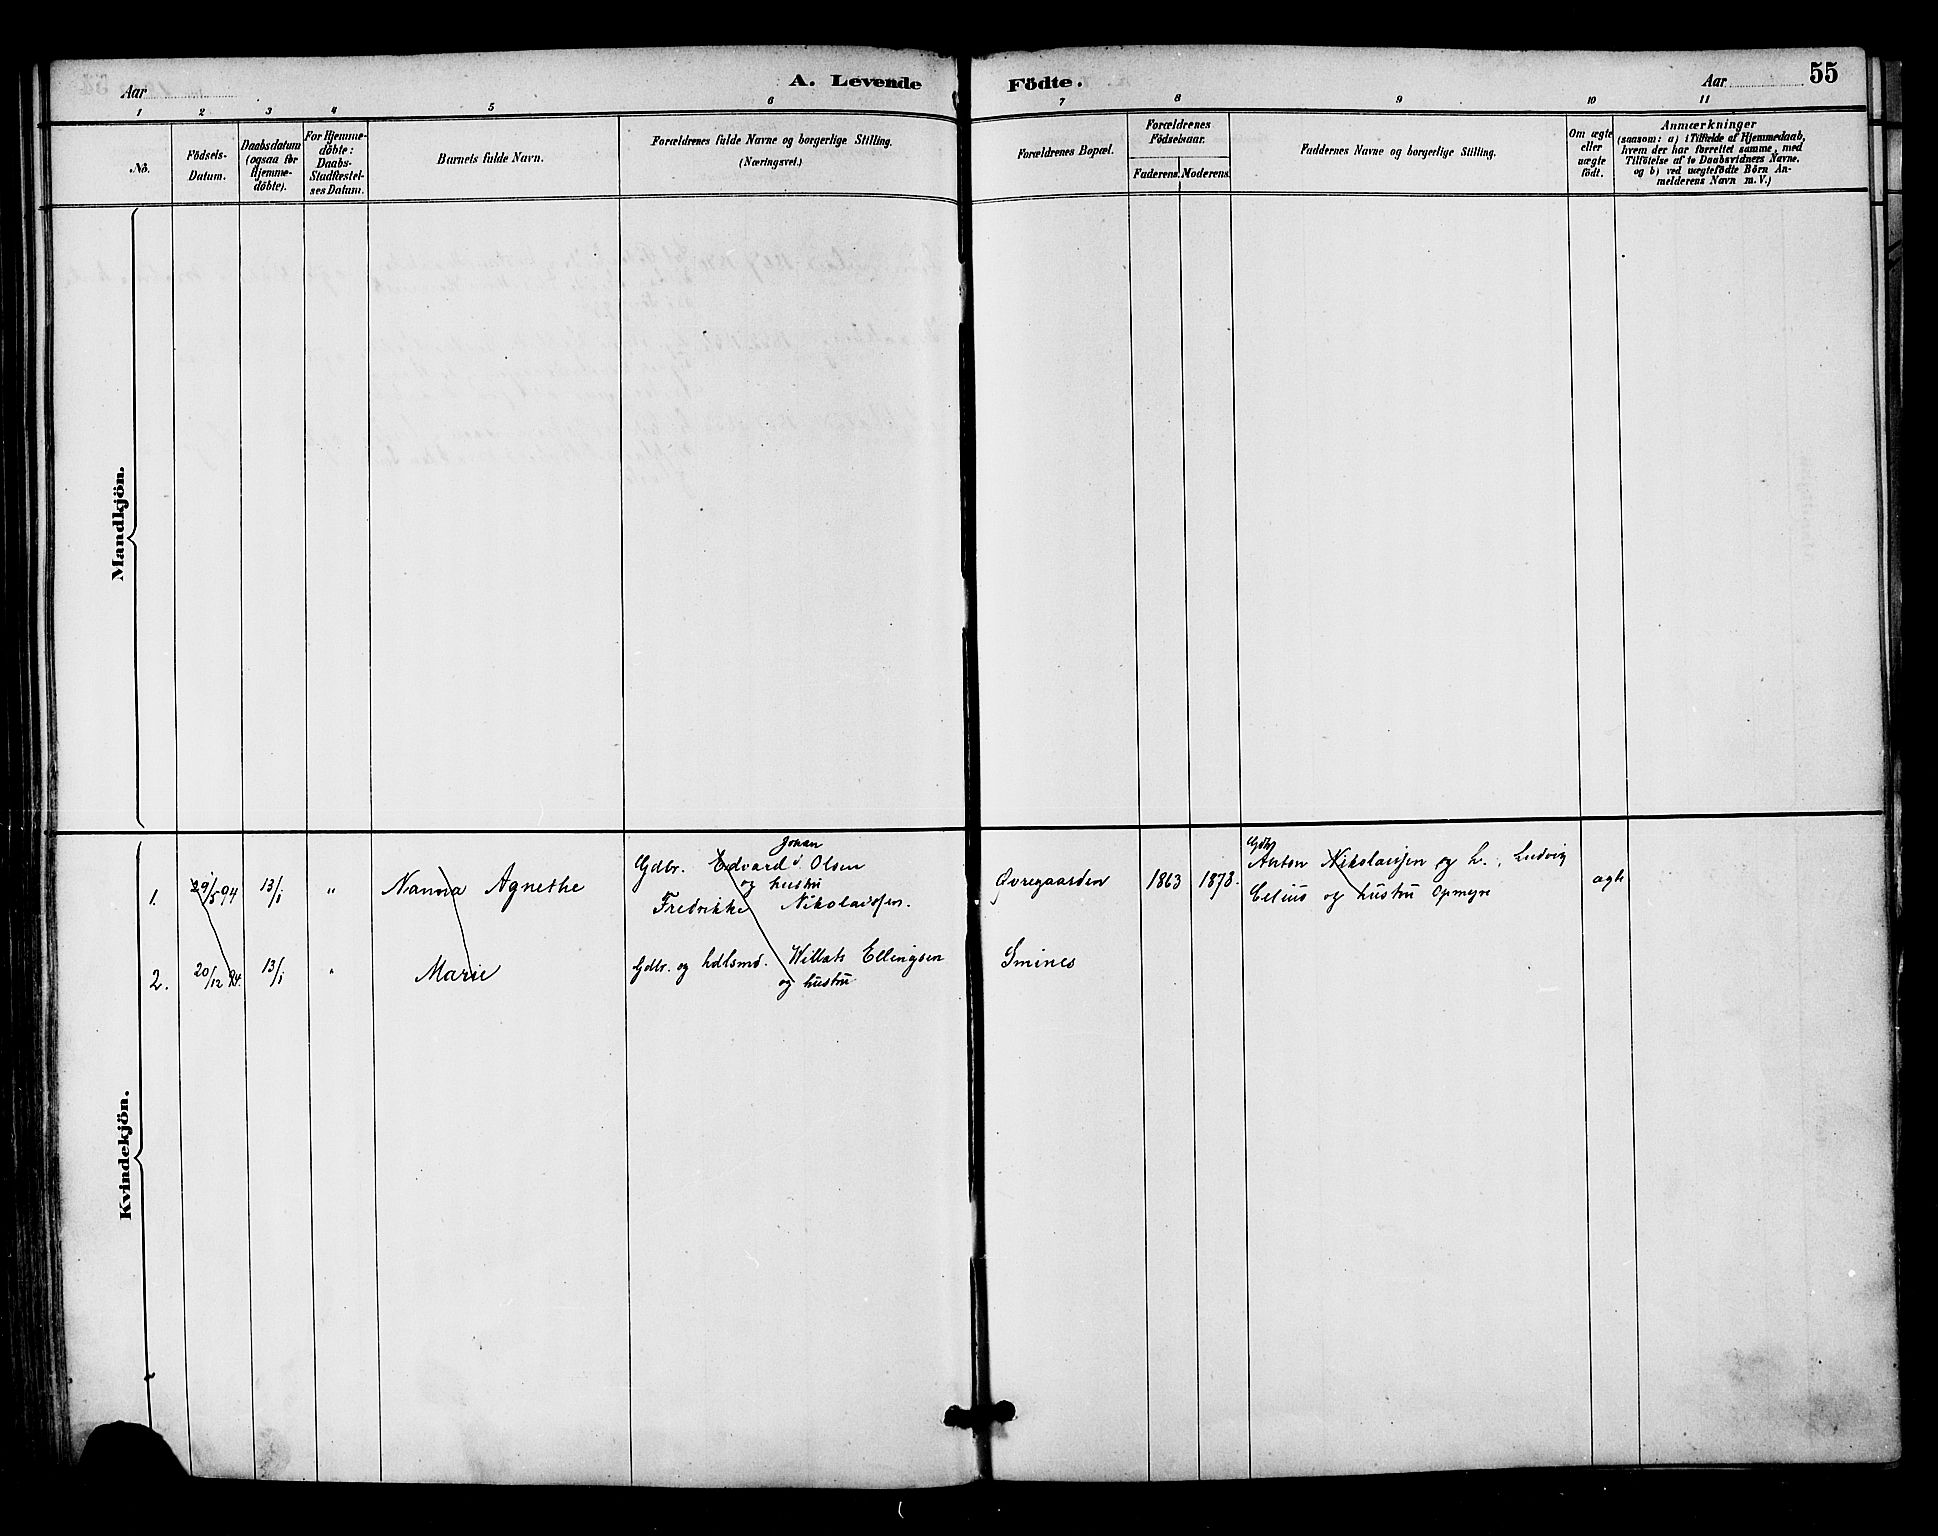 Aar
A. Levende
Födte.
Aar
55
1 2 3 4 5 6 7 8 9 10 11
No.
Födsels-
Datum.
Daabsdatum
(ogsaa for
Hjemme-
döbte).
For Hjemme-
döbte:
Daabs-
Stadfæstel-
ses Datum.
Barnets fulde Navn.
Forældrenes fulde Navne og borgerlige Stilling.
(Næringsvei.)
Forældrenes Bopæl.
Forældrenes
Födselsaar.
Faderens. Moderens.
Faddernes Navne og borgerlige Stilling.
Om ægte
eller
uægte
födt.
Anmærkninger
(saasom: a) i Tilfælde af Hjemmedaab,
hvem der har forrettet samme, med
Tilföielse af to Daabsvidners Navne.
og b) ved uægtefödte Börn An-
melderens Navn m. V.)
Mandkjön.
Kvindekjön.
Johan
1. 29/5 94 13/1 " Nanna Agnethe Gdbr. Edvard Olsen
og hustru
Fredrikke Nikolaisen.
Øvregaarden 1863 1873.
Anton Nikolaisen og h., Ludvig
Celius og hustru Opmyre
ægte
2. 20/12 94. 13/1 " Marie Gdbr. og hdlsmd. Willats Ellingsen
og hustru
Smines